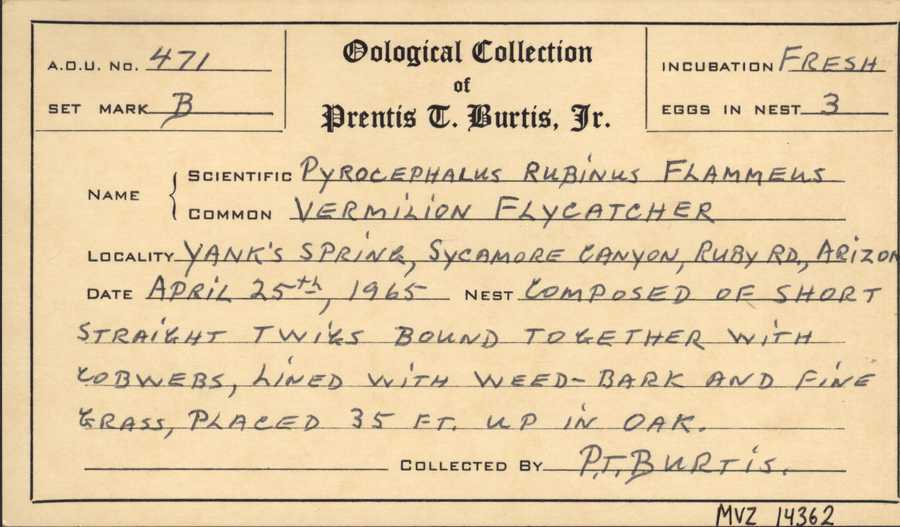 A.O.U. No. 471
Oological Collection
of
Prentis T. Burtis, Jr.
INCUBATION FRESH
SET MARK B
EGGS IN NEST 3
NAME
SCIENTIFIC PYROCEPHALUS RUBINUS FLAMMEUS
COMMON VERMILION FLYCATCHER
LOCALITY YANK'S SPRING, SYCAMORE CANYON, RUBY RD., ARIZON
DATE APRIL 25th, 1965 NEST COMPOSED OF SHORT
STRAIGHT TWIGS BOUND TOGETHER WITH
COBWEBS, LINED WITH WEED-BARK AND FINE
GRASS, PLACED 35 FT. UP IN OAK.
COLLECTED BY P.T. BURTIS.
MVZ 14362